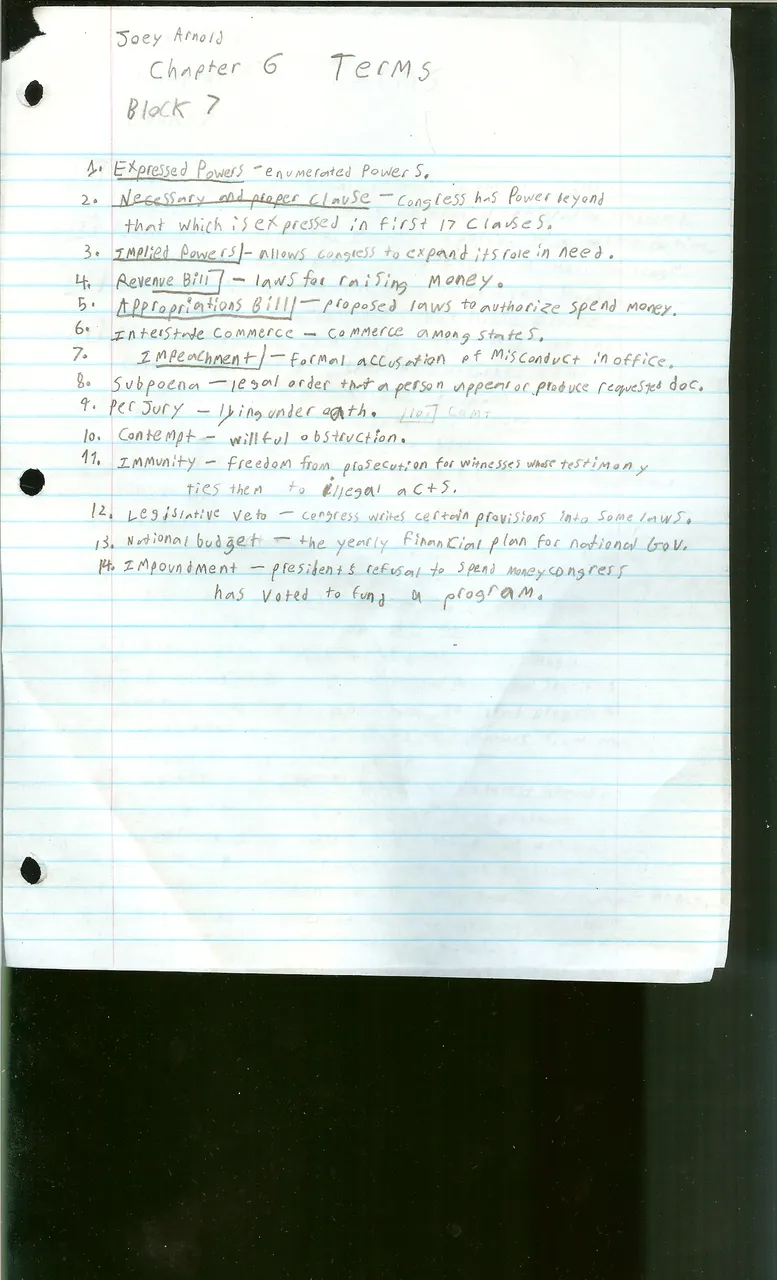 Joey Arnold
Chapter 6 Terms
Block 7
1. Expressed Powers - enumerated Powers.
2. Necessary and proper clause - Congress has Power beyond
that which is expressed in first 17 clauses.
3. Implied Powers - allows congress to expand its role in need.
4. Revenue Bill - laws for raising money.
5. Appropriations Bill - proposed laws to authorize spend money.
6. Interstate Commerce - commerce among states.
7. Impeachment - formal accusation of misconduct in office.
8. Subpoena - legal order that a person appear or produce requested doc.
9. Perjury - lying under oath.
10. Contempt - willful obstruction.
11. Immunity - freedom from prosecution for witnesses whose testimony
ties them to illegal acts.
12. Legislative Veto - congress writes certain provisions into some laws.
13. National budget - the yearly financial plan for national Gov.
14. Impoundment - presidents refusal to spend money congress
has voted to fund a program.